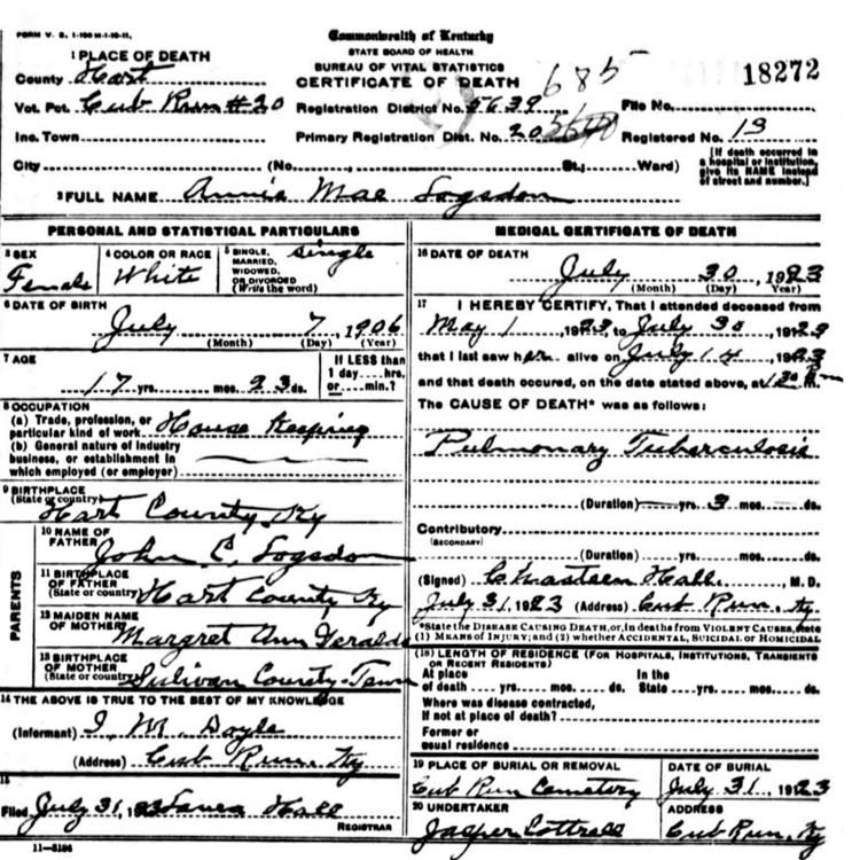 FORM V. S. 1-100 M-1-20-21.
Commonwealth of Kentucky
STATE BOARD OF HEALTH
BUREAU OF VITAL STATISTICS
CERTIFICATE OF DEATH
685
18272
1 PLACE OF DEATH
County Hart
Vot. Pct. Cub Run #20 Registration District No. 5639 File No.
Inc. Town Primary Registration Dist. No. 20 5640 Registered No. 19
City (No. , St.; Ward)
(If death occurred in
a hospital or institution,
give its NAME instead
of street and number.)
2 FULL NAME Annie Mae Logsdon
PERSONAL AND STATISTICAL PARTICULARS
3 SEX
Female
4 COLOR OR RACE
White
5 SINGLE, single
MARRIED,
WIDOWED,
OR DIVORCED
(Write the word)
6 DATE OF BIRTH
July 7, 1906
(Month) (Day) (Year)
7 AGE
17 yrs. mos. 23 ds.
If LESS than
1 day....hrs.
or.....min.?
8 OCCUPATION
(a) Trade, profession, or
particular kind of work House Keeping
(b) General nature of industry
business, or establishment in
which employed (or employer)
9 BIRTHPLACE
(State or country)
Hart County Ky
PARENTS
10 NAME OF
FATHER
John C. Logsdon
11 BIRTHPLACE
OF FATHER
(State or country) Hart County Ky
12 MAIDEN NAME
OF MOTHER
Margret Ann Geralds
13 BIRTHPLACE
OF MOTHER
(State or country) Sulivan County-Tenn
14 THE ABOVE IS TRUE TO THE BEST OF MY KNOWLEDGE
(Informant) I. M. Doyle
(Address) Cub Run, Ky
15
Filed July 31, 1923 Laura Hall
REGISTRAR
11-3186
MEDICAL CERTIFICATE OF DEATH
16 DATE OF DEATH
July 30, 1923
(Month) (Day) (Year)
17 I HEREBY CERTIFY, That I attended deceased from
May 1, 1923, to July 30, 1923
that I last saw her alive on July 14, 1923
and that death occured, on the date stated above, at 1 30
The CAUSE OF DEATH* was as follows:
Pulmonary Tuberculosis
(Duration) yrs. 3 mos. ds.
Contributory
(SECONDARY)
(Duration) yrs. mos. ds.
(Signed) Hall, M. D.
July 31, 1923 (Address) Cub Run, Ky
*State the DISEASE CAUSING DEATH, or, in deaths from VIOLENT CAUSES, state
(1) MEANS OF INJURY; and (2) whether ACCIDENTAL, SUICIDAL OR HOMICIDAL
(18) LENGTH OF RESIDENCE (FOR HOSPITALS, INSTITUTIONS, TRANSIENTS
OR RECENT RESIDENTS)
At place In the
of death .... yrs. mos. ds. State yrs. mos. ds.
Where was disease contracted,
if not at place of death?
Former or
usual residence
19 PLACE OF BURIAL OR REMOVAL
Cub Run Cemetery
DATE OF BURIAL
July 31, 1923
20 UNDERTAKER
Jasper Cottrell
ADDRESS
Cub Run, Ky